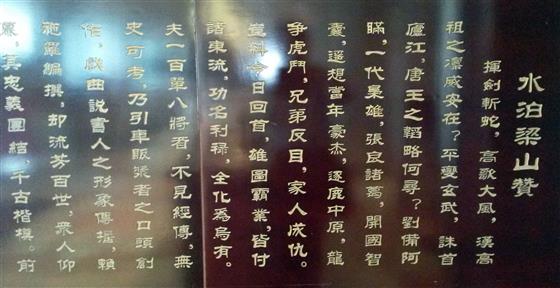 水泊梁山贊
揮劍斬蛇，高歌大風，漢高
祖之凛威安在？平變玄武，誅首
廬江，唐王之韜略何尋？劉備阿
瞞，一代梟雄，張良諸葛，開國智
囊，遥想當年豪杰，逐鹿中原，龍
争虎鬥，兄弟反目，家人成仇。
豈料今日回首，雄圖霸業，皆付
諸東流，功名利禄，全化爲烏有。
夫一百單八將者，不見經傳，無
史可考，乃引車販漿者之口頭創
作，戲曲説書人之形象傳摇，賴
施羅編撰，却流芳百世，衆人仰
慕，其忠義團結，千古楷模。前